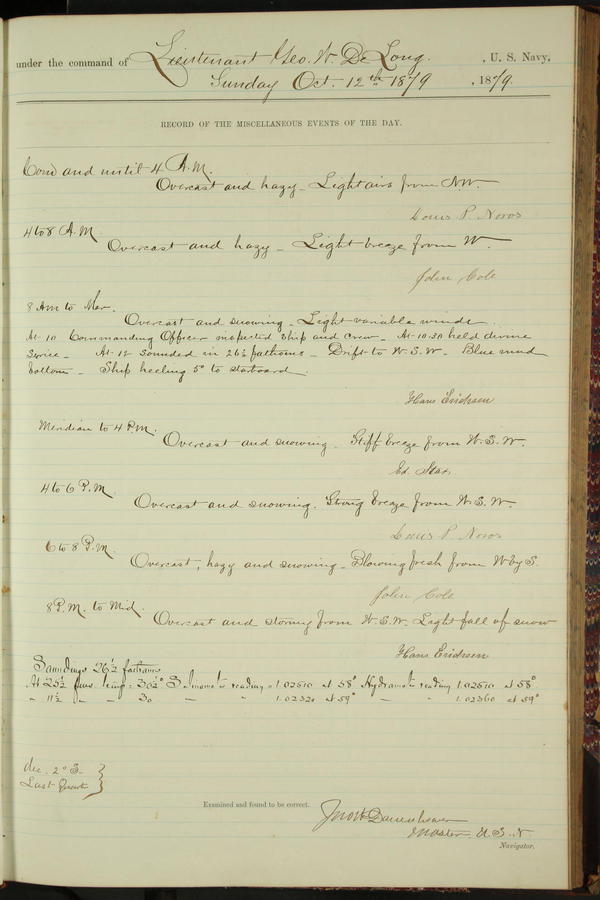 under the command of Lieutenant Geo. W. De Long. , U. S. Navy,
Sunday Oct. 12th 1879 , 1879.
RECORD OF THE MISCELLANEOUS EVENTS OF THE DAY.
Com'd and until 4 A.M.
Overcast and hazy - Light airs from NW.
Louis P. Noros
4 to 8 A.M.
Overcast and hazy - Light breeze from W.
John Cole
8 AM to Mer.
Overcast and snowing - Light variable winds.
At 10 Commanding Officer inspected Ship and crew - At 10.30 held divine
Service - At 12 sounded in 26½ fathoms - Drift to W.S.W. Blue mud
bottom - Ship heeling 5° to starboard.
Hans Erichsen
Meridian to 4 P.M.
Overcast and snowing. Stiff breeze from W.S.W.
Ed. Star
4 to 6 P.M.
Overcast and snowing. Strong breeze from W.S.W.
Louis P. Noros
6 to 8 P.M.
Overcast, hazy and snowing - Blowing fresh from W by S.
John Cole
8 P.M. to Mid.
Overcast and storming from W.S.W. Light fall of snow
Hans Erichsen
Soundings 26½ fathoms
At 25½ fms temp = 30½° Salinometer reading = 1.02610 at 58° Hydrometer reading 1.02610 at 58°
" 11½ " " 30 - " 1.02320 at 59° - " 1.02360 at 59°
dec. 2° S.
Last Quart
Examined and found to be correct.
Jno W Danenhower
Master, U.S.N.
Navigator.